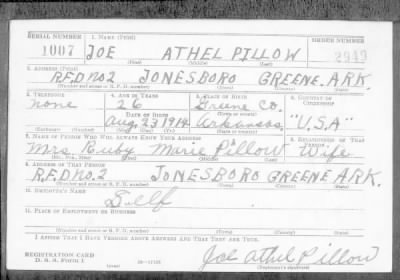 SERIAL NUMBER 1. NAME (Print) ORDER NUMBER
1007 JOE ATHEL PILLOW 2949
(First) (Middle) (Last)
2. ADDRESS (Print)
R.F.D no2 JONESBORO GREENE, ARK.
(Number and street or R. F. D. number) (Town) (County) (State)
3. TELEPHONE 4. AGE IN YEARS 5. PLACE OF BIRTH 6. COUNTRY OF CITIZENSHIP
none 26 Greene Co.
DATE OF BIRTH (Town or county)
Aug. 23 1914 Arkansas. "U.S.A"
(Exchange) (Number) (Mo.) (Day) (Yr.) (State or country)
7. NAME OF PERSON WHO WILL ALWAYS KNOW YOUR ADDRESS 8. RELATIONSHIP OF THAT PERSON
Mrs. Ruby Marie Pillow Wife
(Mr., Mrs., Miss) (First) (Middle) (Last)
9. ADDRESS OF THAT PERSON
R.F.D no2 JONESBORO GREENE, ARK.
(Number and street or R. F. D. number) (Town) (County) (State)
10. EMPLOYER'S NAME
Self
11. PLACE OF EMPLOYMENT OR BUSINESS
(Number and street or R. F. D. number) (Town) (County) (State)
I AFFIRM THAT I HAVE VERIFIED ABOVE ANSWERS AND THAT THEY ARE TRUE.
REGISTRATION CARD
D. S. S. Form 1 Joe Athel Pillow
(Registrant's signature)